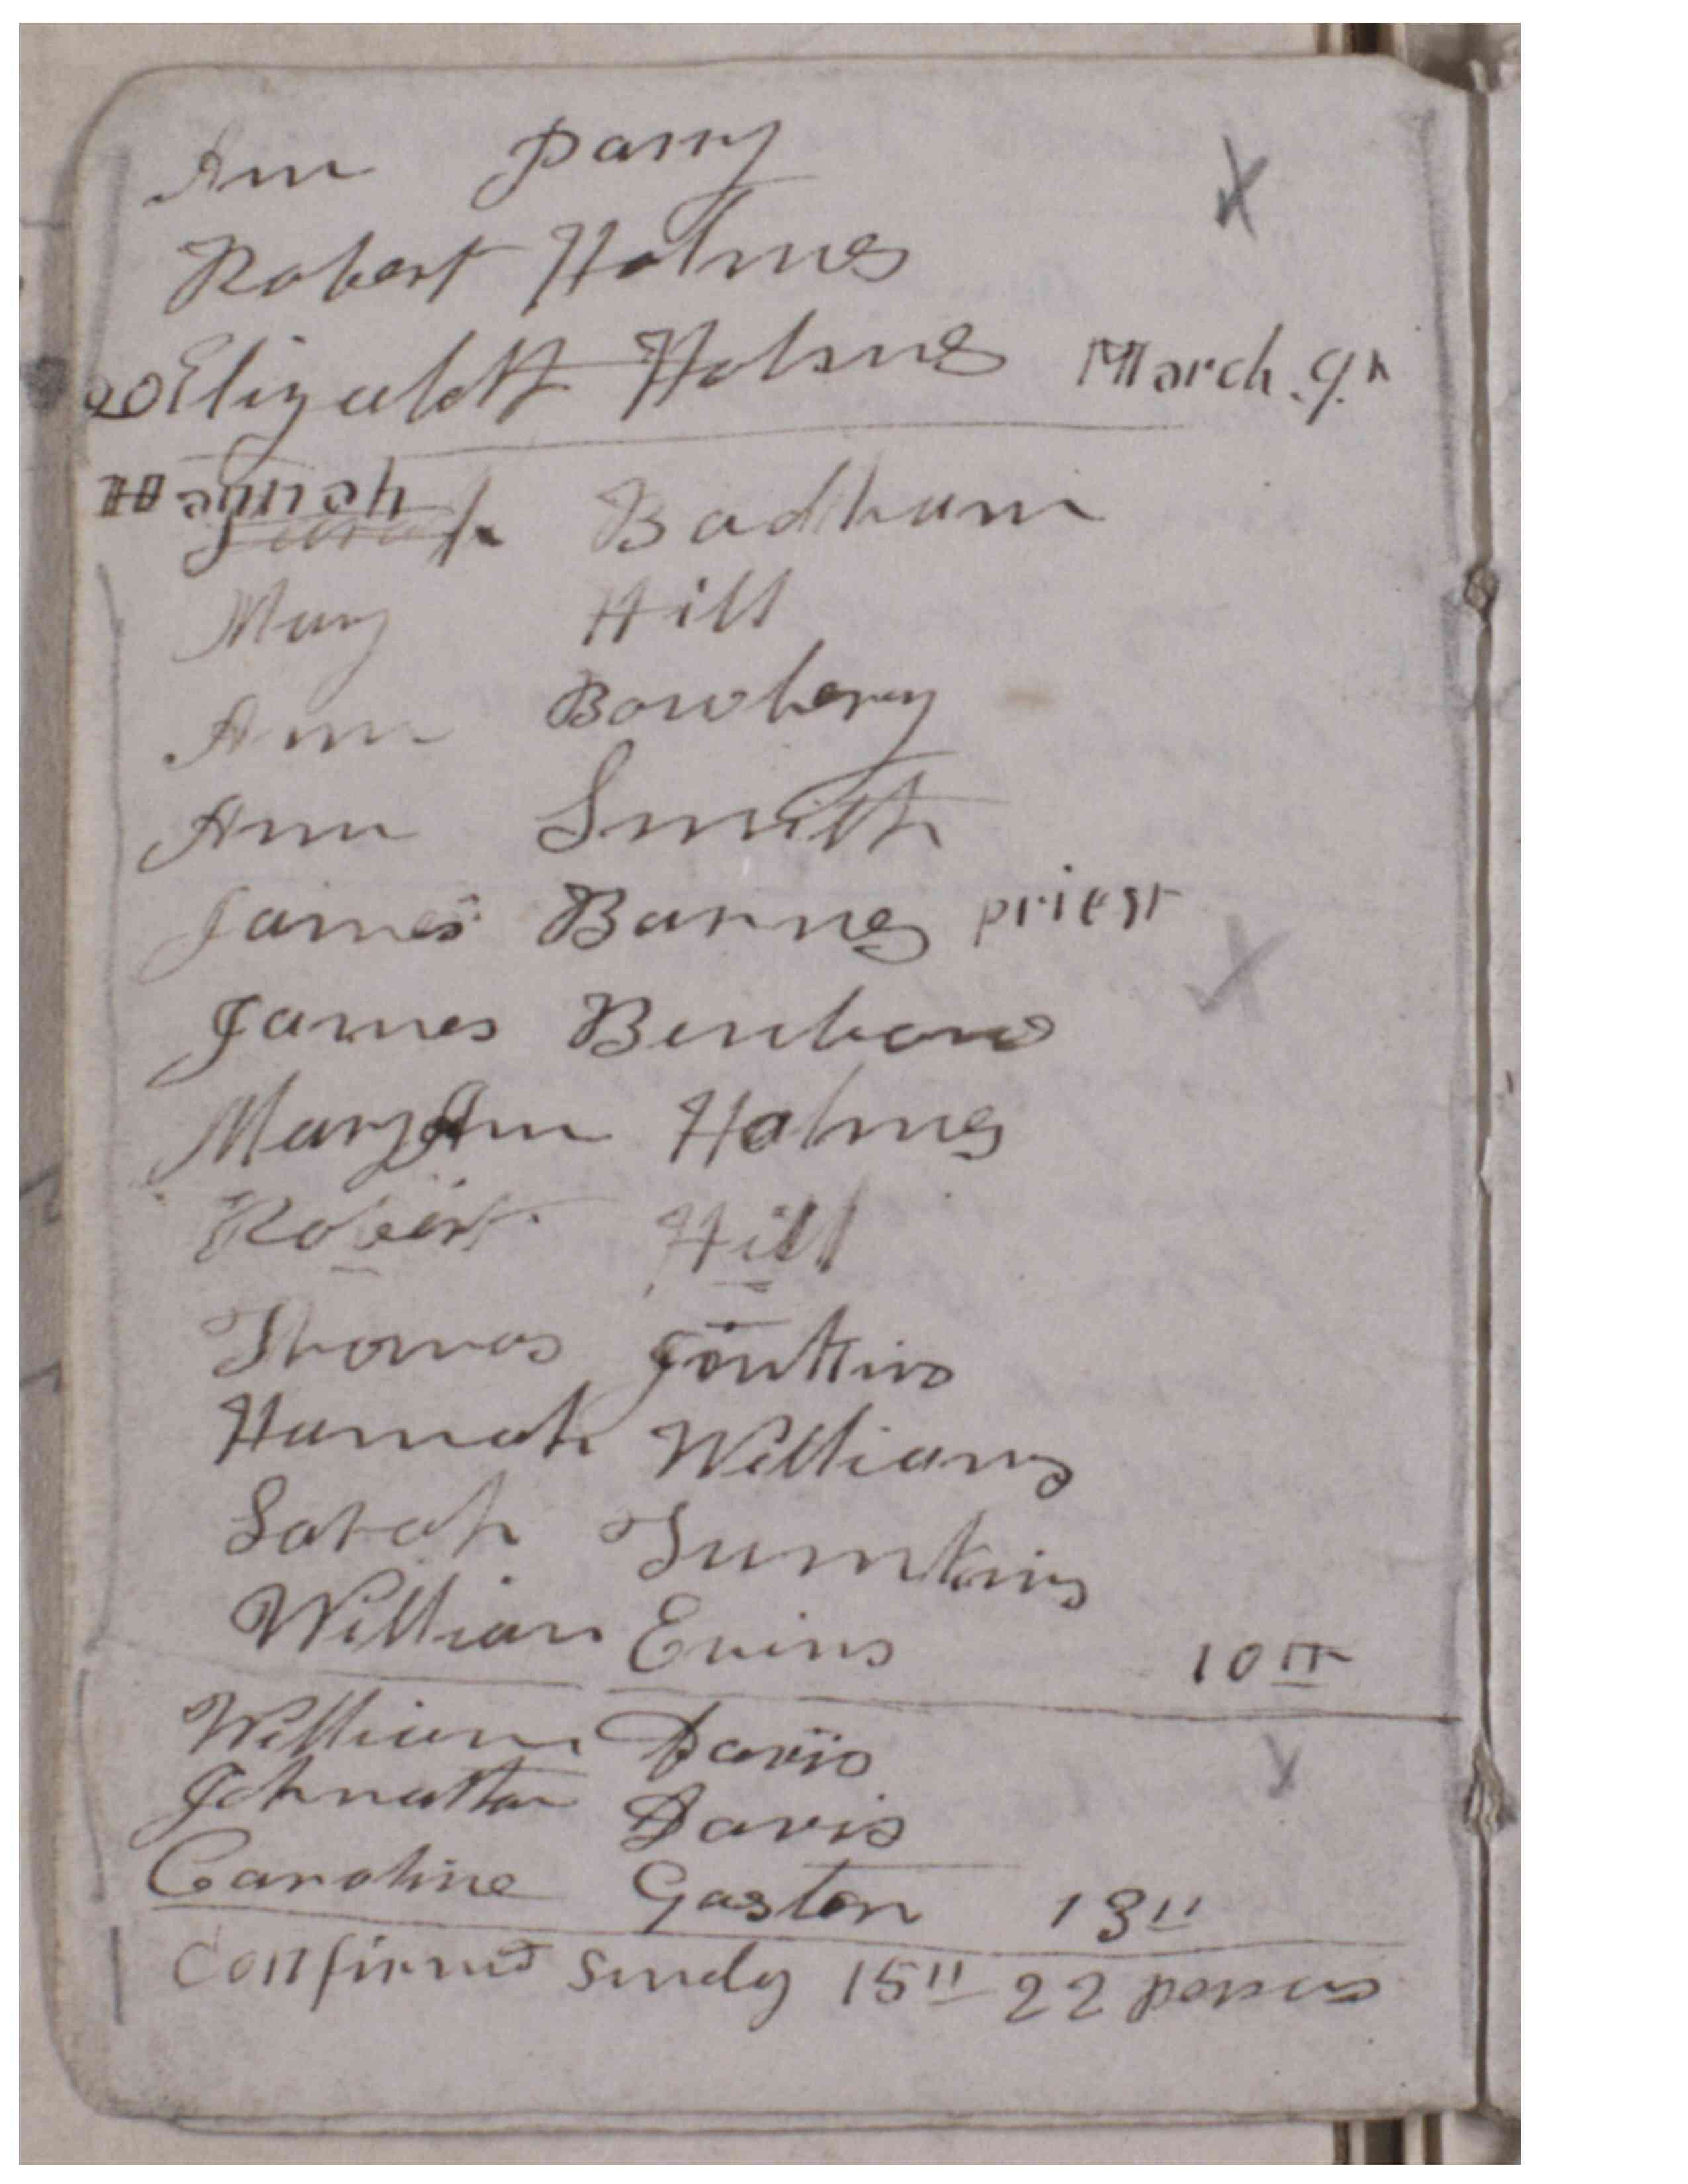 Ann Parry
Robert Holmes
20 Elizabeth Holmes March 9th
Hannah Badham
Mary Hill
Ann Bowbery
Ann Smith
James Barnes priest
James Benbow
Mary Ann Holmes
Robert Hill
Thomas Jenkins
Hannah Williams
Sarah Tumkins
William Evins 10th
William Davis
Johnathan Davis
Caroline Gaston 13"
Confirmed Sundy 15" 22 persons